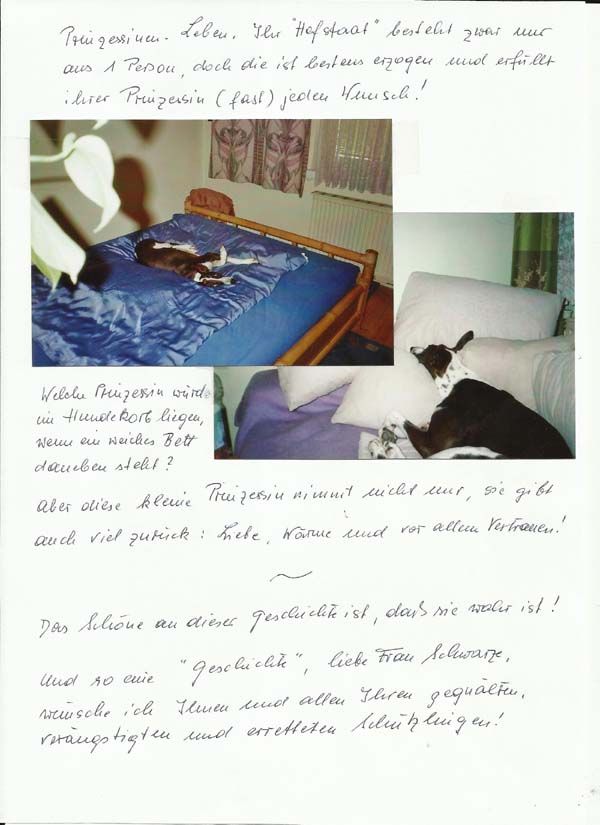 Prinzessinen-Leben. Ihr "Hofstaat" besteht zwar nur
aus 1 Person, doch die ist bestens erzogen und erfüllt
ihrer Prinzessin (fast) jeden Wunsch!
Welche Prinzessin würde
im Hundekorb liegen,
wenn ein weiches Bett
daneben steht?
Aber diese kleine Prinzessin nimmt nicht nur, sie gibt
auch viel zurück: Liebe, Wärme und vor allem Vertrauen!
Das Schöne an dieser Geschichte ist, daß sie wahr ist!
Und so eine "Geschichte", liebe Frau Schwarze,
wünsche ich Ihnen und allen Ihren gequälten,
verängstigten und erretteten Schützlingen!